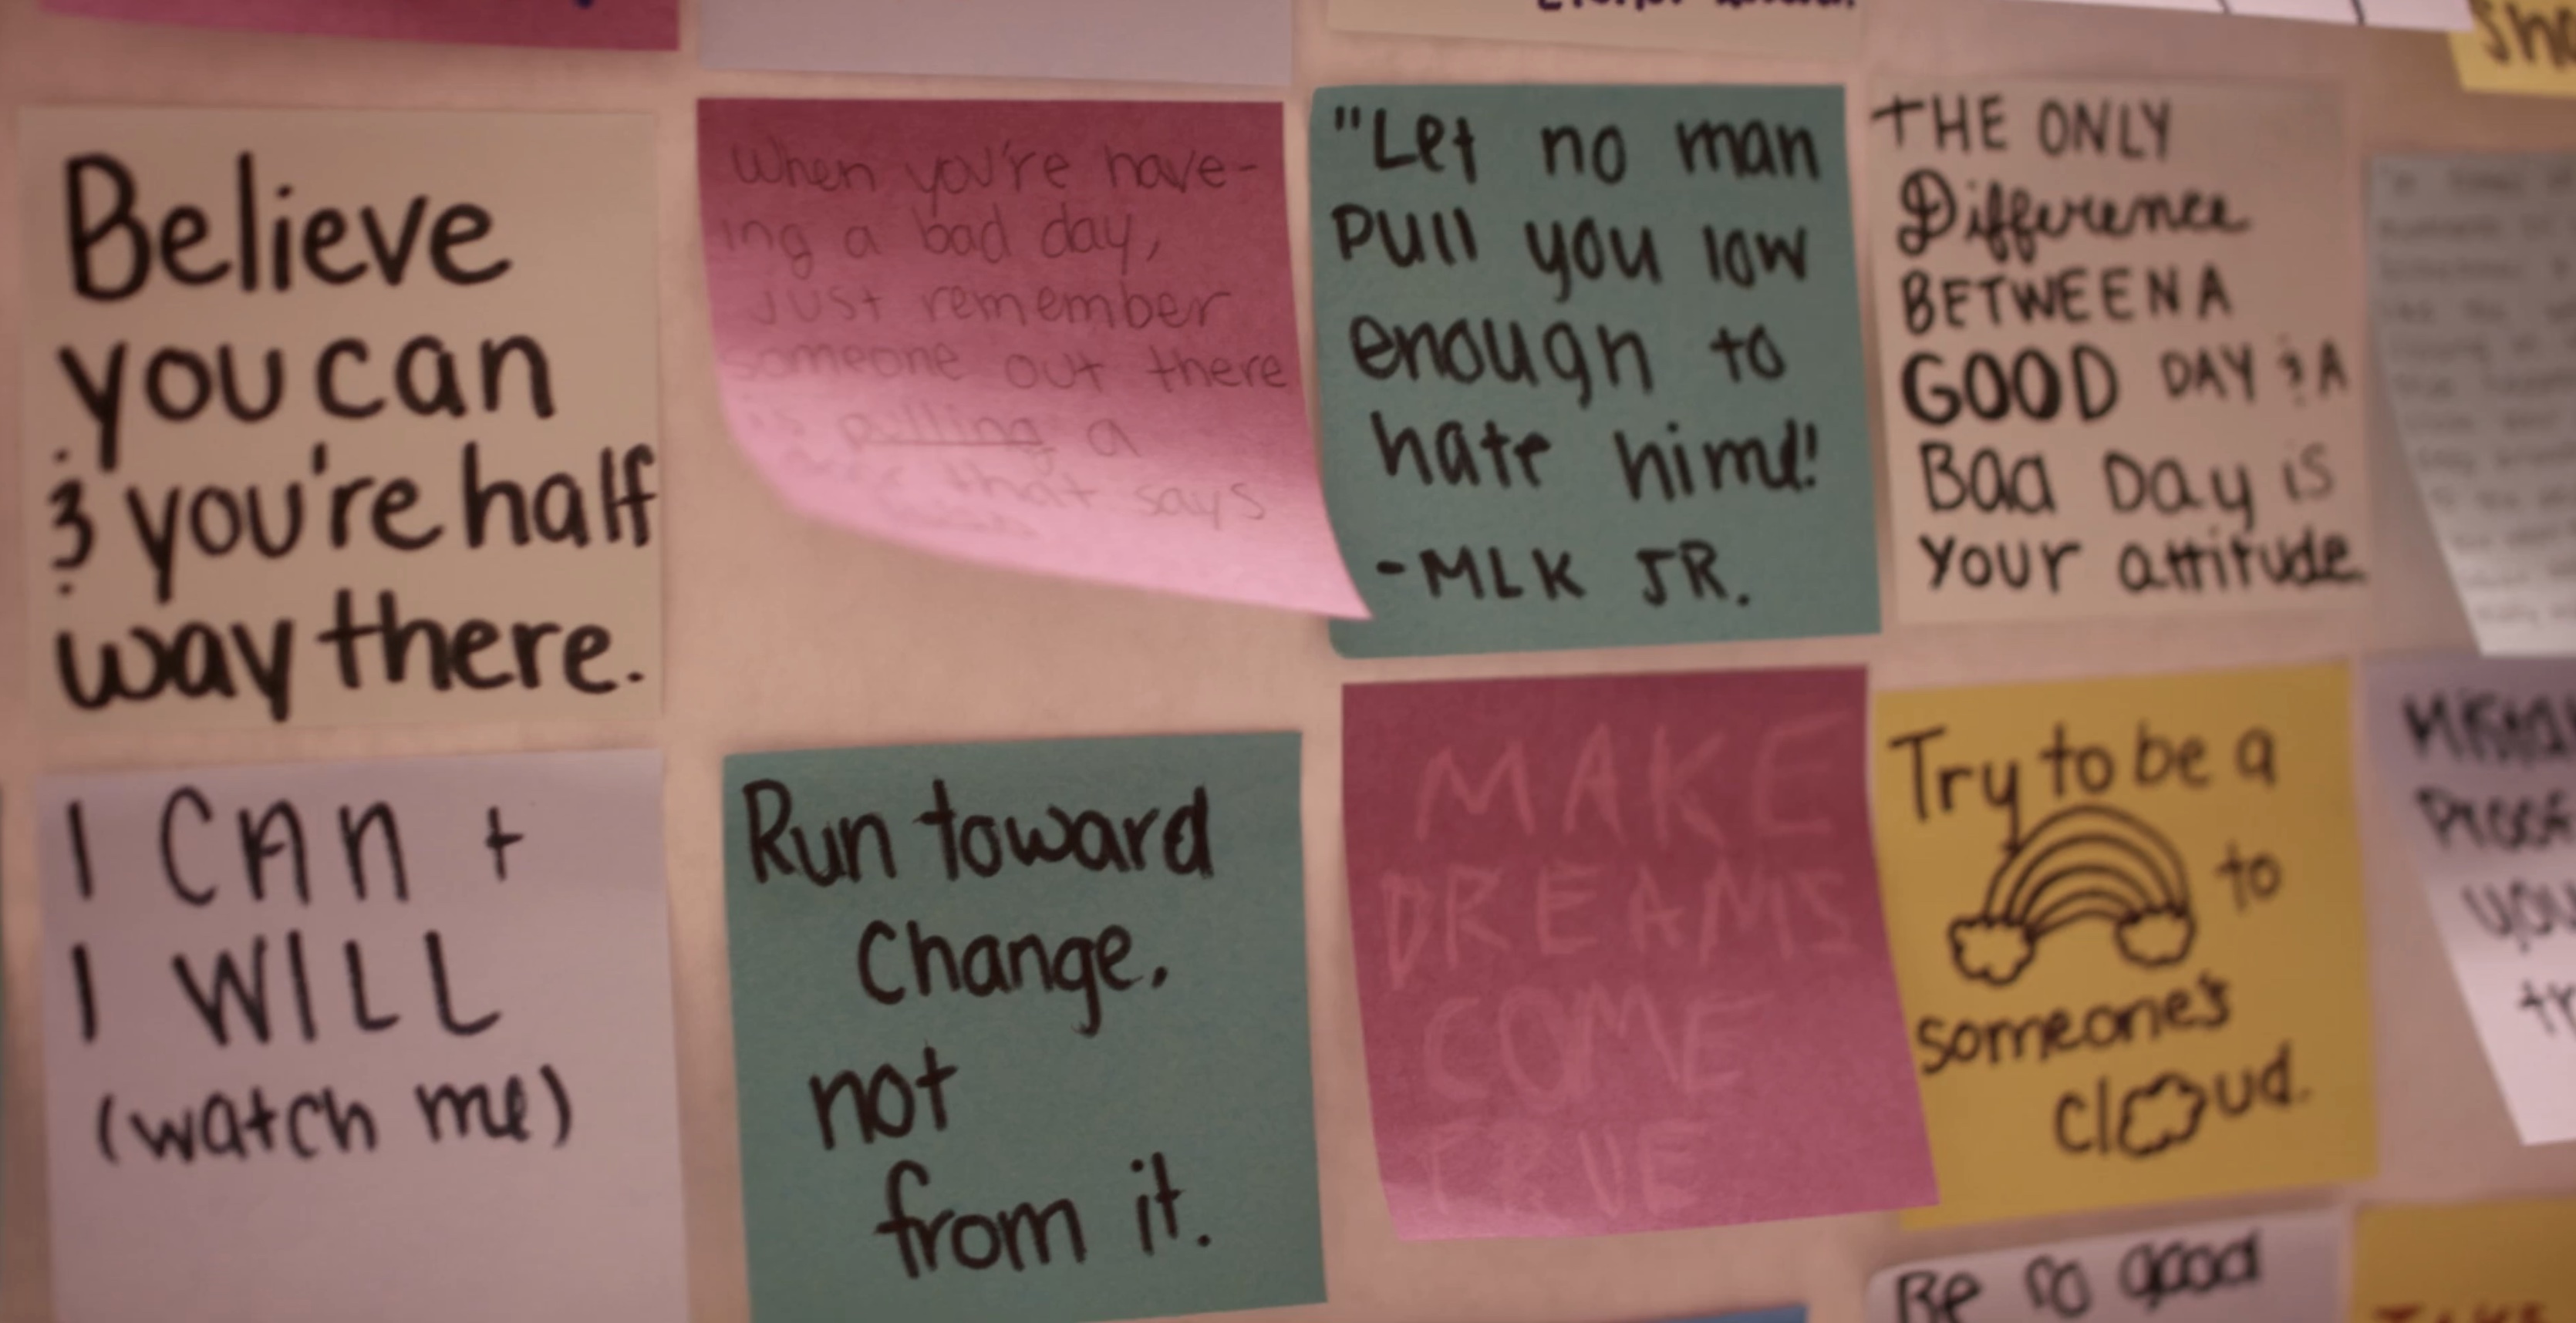 Believe
you can
& you're half
way there.
When you're have-
ing a bad day,
Just remember
someone out there
is pulling a
that says
"Let no man
Pull you low
enough to
hate him!"
-MLK JR.
THE ONLY
Difference
BETWEEN A
GOOD DAY & A
Bad Day is
your attitude
I CAn +
I WILL
(watch me)
Run toward
Change,
not
from it.
MAKE
DREAMS
COME
TRUE
Try to be a
to
someone's
cloud.
you
Be so good